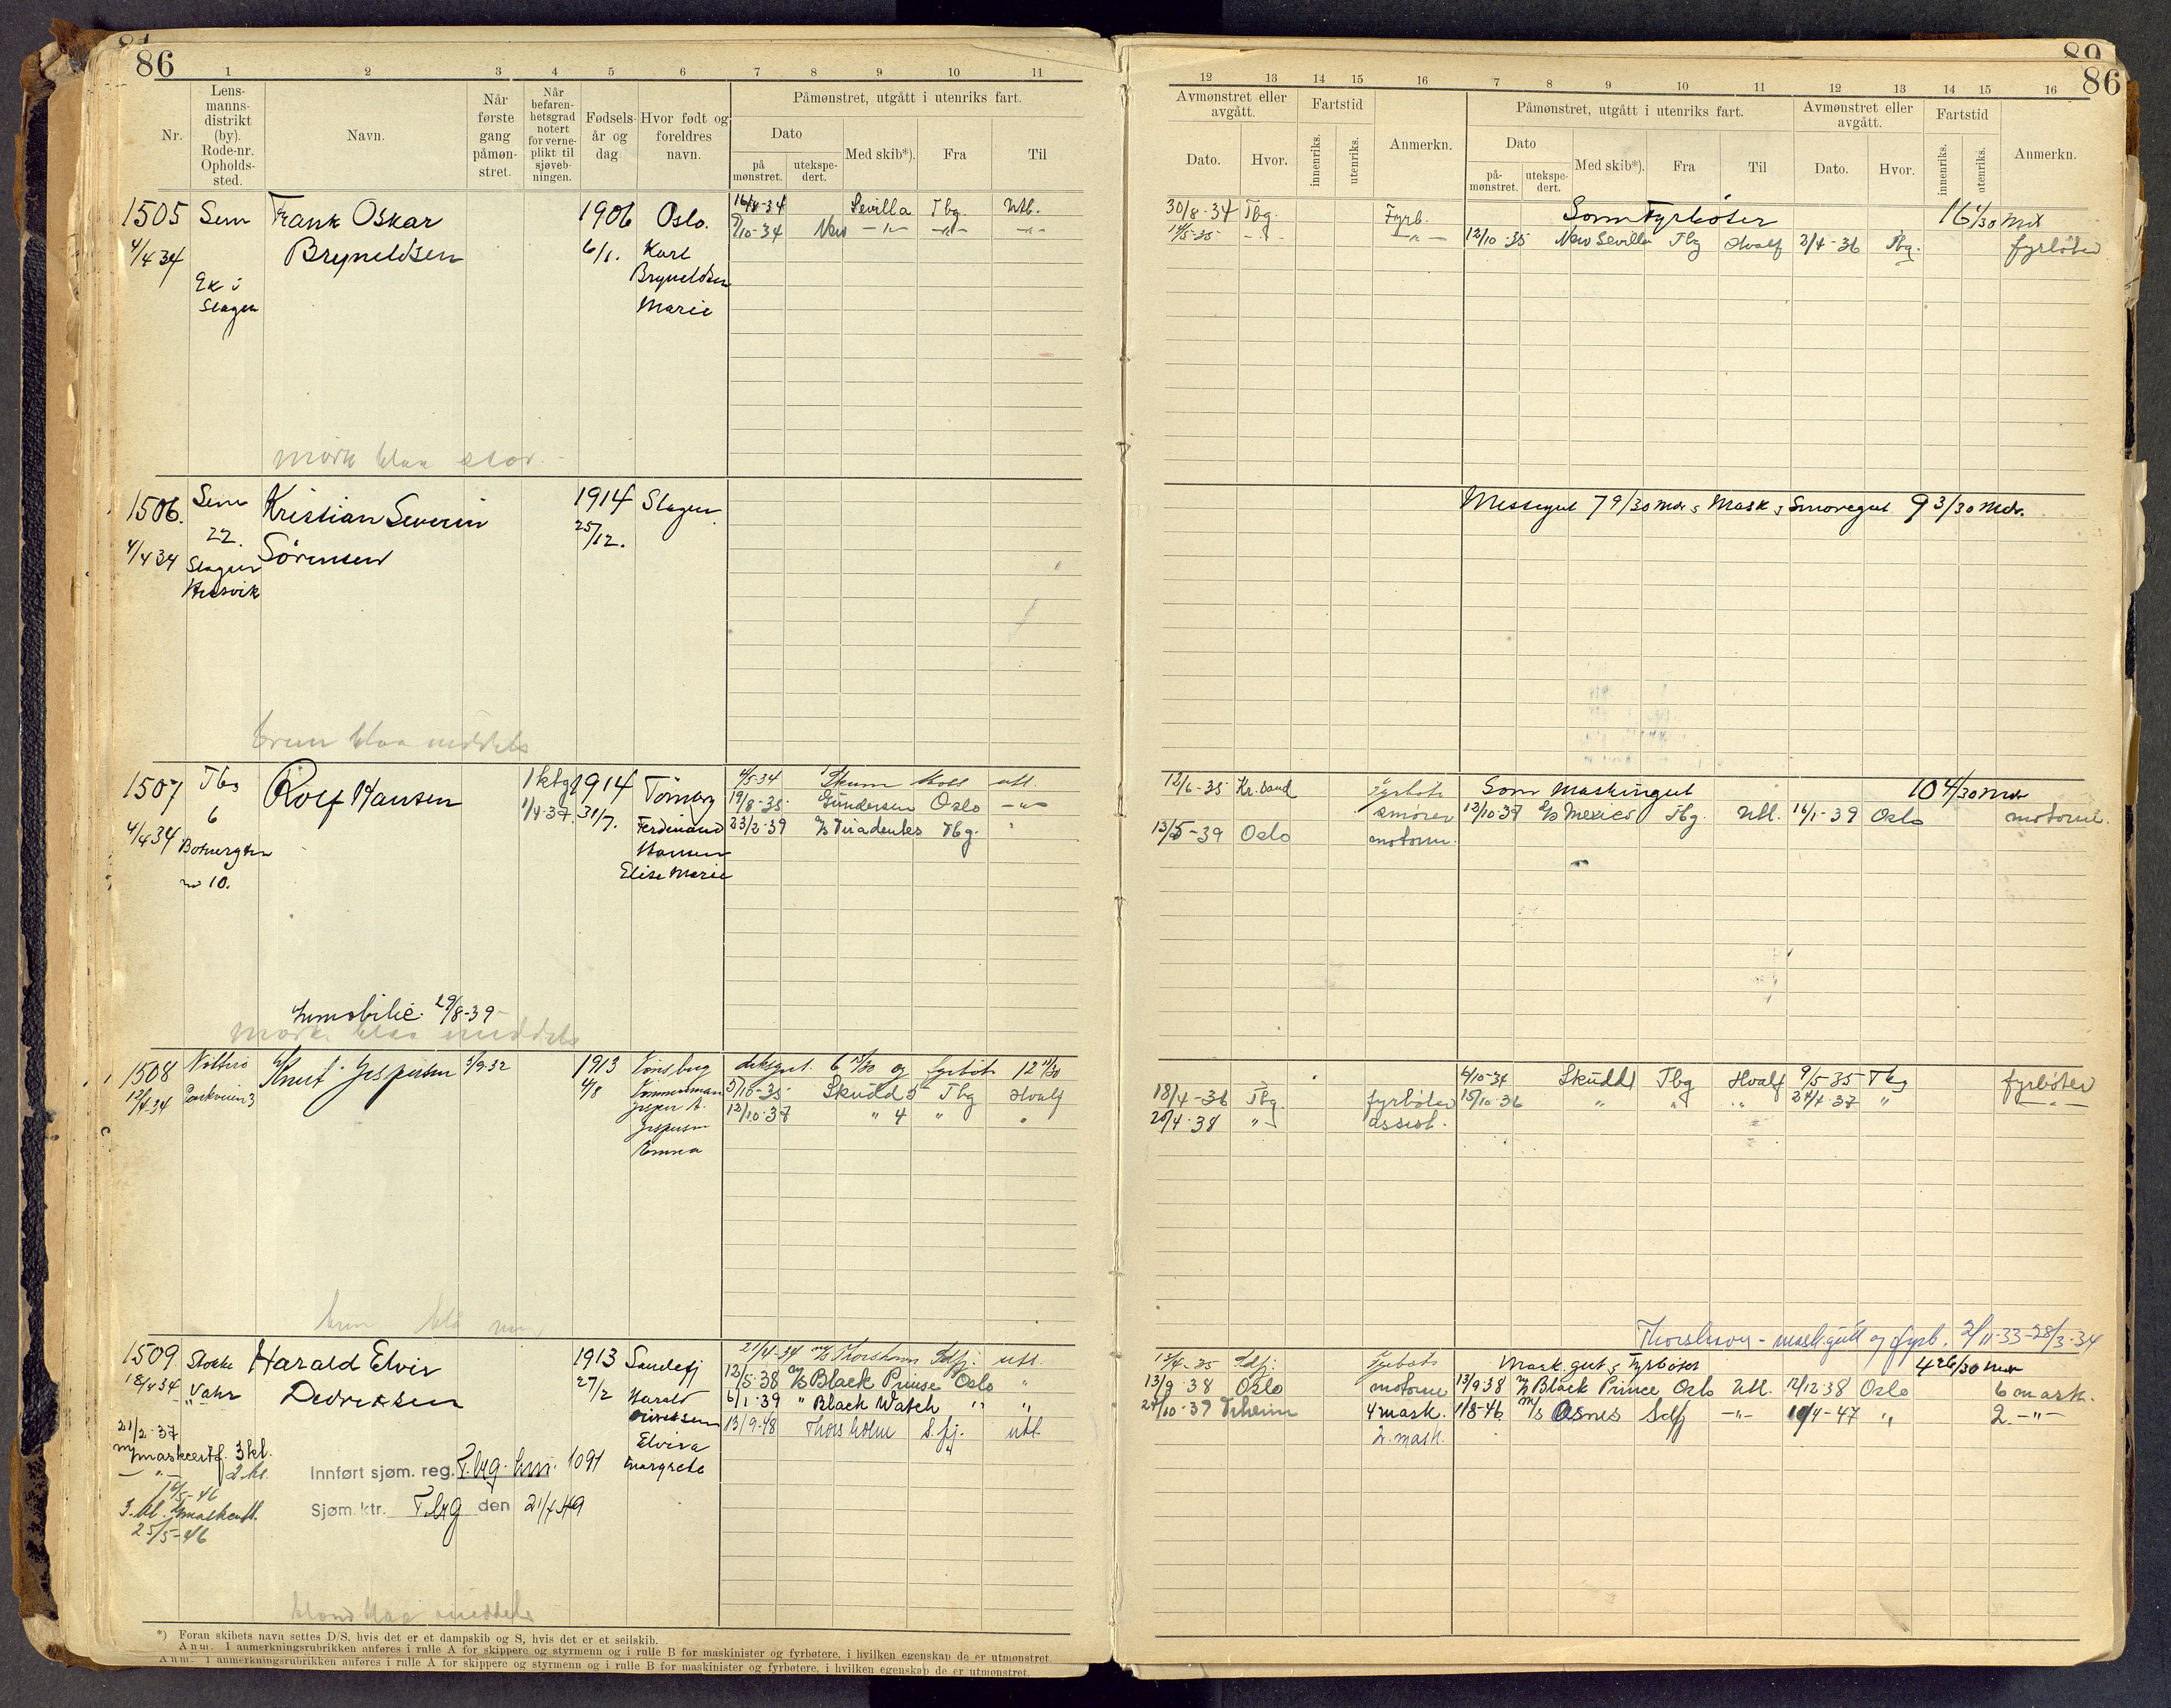 86
1 2 3 4 5 6 7 8 9 10 11
Nr.
Lens-
manns-
distrikt
(by).
Rode-nr.
Opholds-
sted.
Navn.
Når
første
gang
påmøn-
stret.
Når
befaren-
hetsgrad
notert
for verne-
plikt til
sjøveb-
ningen.
Fødsels-
år og
dag
Hvor født og
foreldres
navn.
Påmønstret, utgått i utenriks fart.
Dato
på
mønstret.
utekspe-
dert.
Med skib*).
Fra
Til
1505 Sem Frank Oskar 1906 Oslo. 16/8-34 Sevilla Tbg. Utl.
4/4 34 Bryneldsen 6/1. Karl 9/10-34 New -"- -"- -"-
Ek i Bryneldsen
Slagen Marie
mørk blaa stor.
1506. Sem Kristian Severin 1914 Slagen
22. 25/12.
4/4 34 Slagen Sørensen
Husvik
brun blaa middels
1507 Tbg Rolf Hansen 1 kbfg 1914 Tönsberg 4/5-34 utl.
6 1/4-37. 31/7. Ferdinand 19/8-35 Gundersen Oslo -"-
4/4 34 Hansen 23/2-39 Tiradentes Tbg. "
no 10. Elise Marie
29/8-39
mørk blaa middels
1508 Nötterö Knut Jespersen 3/9-32 1913 Tönsberg deksgut. 6 og fyrböt 12
12/4-34 4/8 Tömmermann 5/10-35 Skudd 5 Tbg Hvalf
Jesper A. 12/10-37 " 4 " "
Jespersen
Emma
brun blå
1509 Stokke Harald Elvis 1913 Sandefj 21/4-34 Thorshavn Sdfj. utl.
18/4 34 Vahr Dedriksen 27/2 Harald 12/5-38 M/S Black Prinse Oslo "
21/2-37 6/1-39 " Black Watch " "
3 kl. Elvira 13/9-48 Thorsholm S.fj. utl.
2 kl. Innført sjøm. reg. Tbrg. 1091 Margrete
16/5-46
Sjøm.ktr. Tbrg den 21/4 49
25/5-46
blond blaa middels
*) Foran skibets navn settes D/S, hvis det er et dampskib og S, hvis det er et seilskib.
Anm. I anmerkningsrubrikken anføres i rulle A for skippere og styrmenn og i rulle B for maskinister og fyrbøtere, i hvilken egenskap de er utmønstret.
Anm. I anmerkningsrubrikken anføres i rulle A for skippere og styrmenn og i rulle B for maskinister og fyrbøtere, i hvilken egenskab de er utmønstret.
89
86
12 13 14 15 16 7 8 9 10 11 12 13 14 15 16
Avmønstret eller
avgått.
Dato.
Hvor.
Fartstid
innenriks.
utenriks.
Anmerkn.
Påmønstret, utgått i utenriks fart.
Dato
på-
mønstret.
utekspe-
dert.
Med skib*).
Fra
Til
Avmønstret eller
avgått.
Dato.
Hvor.
Fartstid
innenriks.
utenriks.
Anmerkn.
30/8-34 Tbg. Fyrb. Som Fyrböter 16 1/30 Md
14/5-35 -"- -"- 12/10 35 New Sevilla Tbg Hvalf 2/4-36 Tbg. fyrböter
Messegut 7 9/30 Mdr, Mask, Smøregut 9 3/30 Mdr.
12/6-35 Kr.sand Fyrböter Som Maskingut 10 4/30 Mdr
smører 12/10-37 Mexico Tbg. Utl. 16/1-39 Oslo motorm.
13/5-39 Oslo motorm.
6/10-34 Skudd 1 Tbg Hvalf 9/5-35 Tbg fyrböter
18/4-36 Tbg. fyrböter 15/10-36 " " " 24/4-37 " "
20/4-38 " assist.
Thorshavn - mask.gutt og fyrb. 2/11-33-28/3-34
13/4-35 Sdfj. Fyrböt Mask.gut, Fyrböter 4 26/30 Mdr
13/9-38 Oslo motorm 13/9-38 M/S Black Prince Oslo Utl. 12/12-38 Oslo 6 mask.
4 mask. 1/8-46 M/S Osnes Sdfj -"- 10/4-47 " 2. -"-
2. mask.